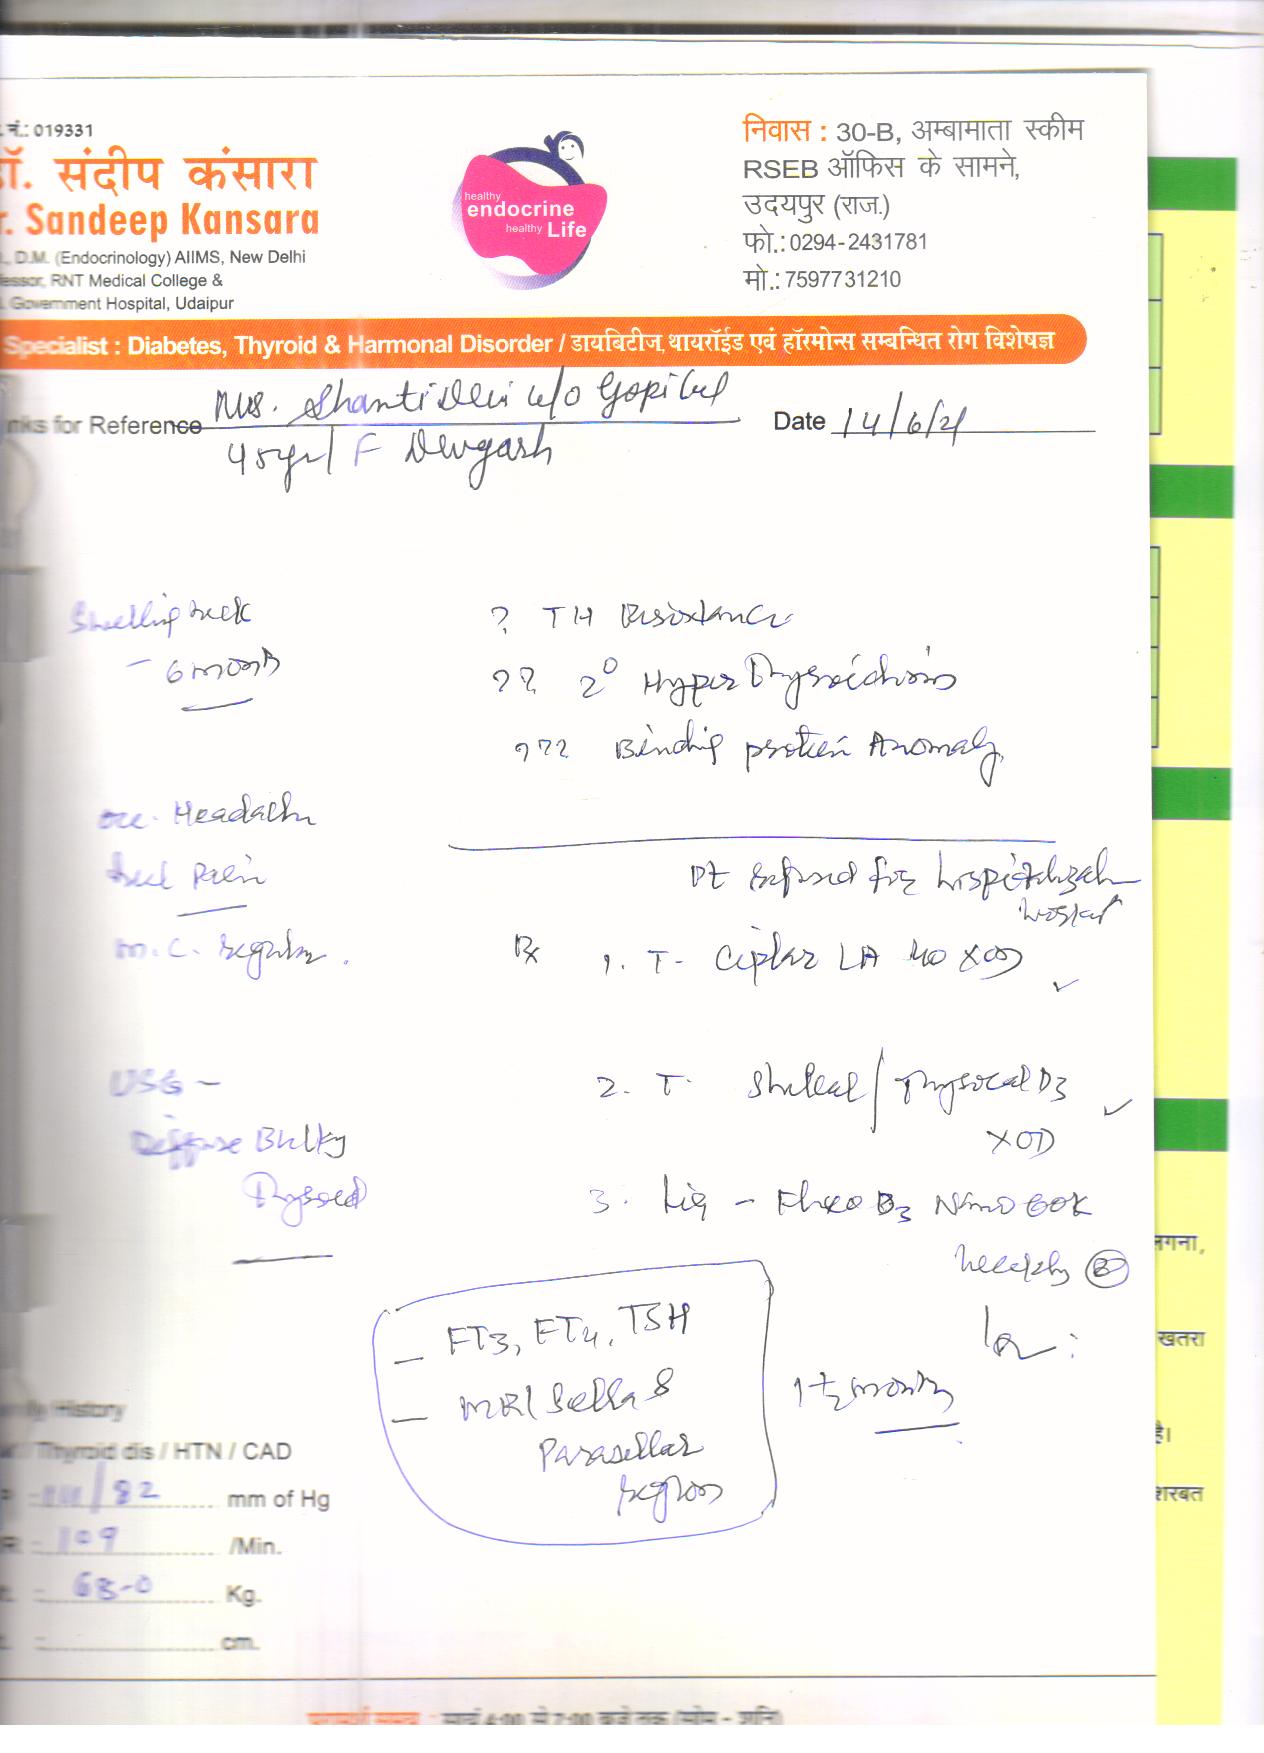 नं.: 019331
डॉ. संदीप कंसारा
r. Sandeep Kansara
D.M. (Endocrinology) AIIMS, New Delhi
fessor, RNT Medical College &
Government Hospital, Udaipur
healthy
endocrine
healthy Life
निवास : 30-B, अम्बामाता स्कीम
RSEB ऑफिस के सामने,
उदयपुर (राज.)
फो.: 0294-2431781
मो.: 7597731210
Specialist : Diabetes, Thyroid & Harmonal Disorder / डायबिटीज, थायरॉईड एवं हॉरमोन्स सम्बन्धित रोग विशेषज्ञ
nks for Reference Mrs. Shanti Devi w/o Gopilal
Date 14/6/21
45yr/F Devgarh
Swelling neck
- 6 month
? TH Resistance
?? 2° Hyperthyroidism
??? Binding protein Anomaly
occ. Headache
Neck Pain
M.C. regular.
Pt refused for hospitalization
workup
Rx 1. T- Ciplar LA 40 XOD
2. T- Shelcal / Thyrocal D3
XOD
USG -
Diffuse Bulky
Thyroid
3. Liq - D3 Nano 60K
weekly 8
- FT3, FT4, TSH
- MRI Sella &
Parasellar
region
1½ month
ly History
Thyroid dis / HTN / CAD
/82 mm of Hg
109 /Min.
68-0 Kg.
cm.
परामर्श समय : सायं 4:00 से 7:00 बजे तक (सोम - शनि)
लगना,
खतरा
है।
शरबत